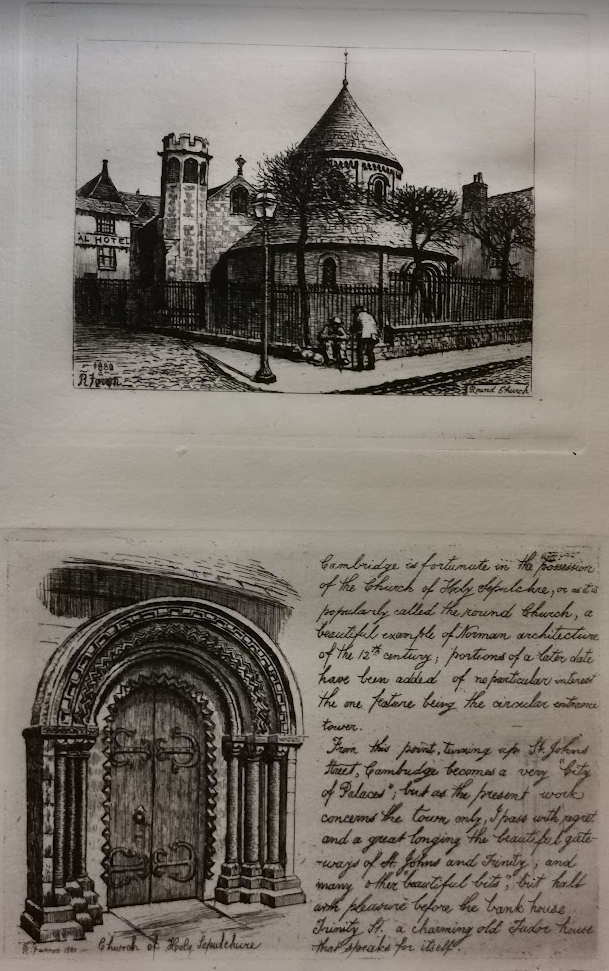 AL HOTEL
1880
R Farren
Round Church
Cambridge is fortunate in the possession
of the Church of Holy Sepulchre, or as it is
popularly called the round Church, a
beautiful example of Norman architecture
of the 12th century; portions of a later date
have been added of no particular interest
the one feature being the circular entrance
tower.
From this point, turning up St. Johns
Street, Cambridge becomes a very "City
of Palaces"; but as the present work
concerns the town only, I pass with regret
and a great longing the beautiful gate-
-ways of St Johns and Trinity, and
many other beautiful "bits", but halt
with pleasure before the bank house,
Trinity St. a charming old Tudor house
that speaks for itself.
R Farren 1880
Church of Holy Sepulchure